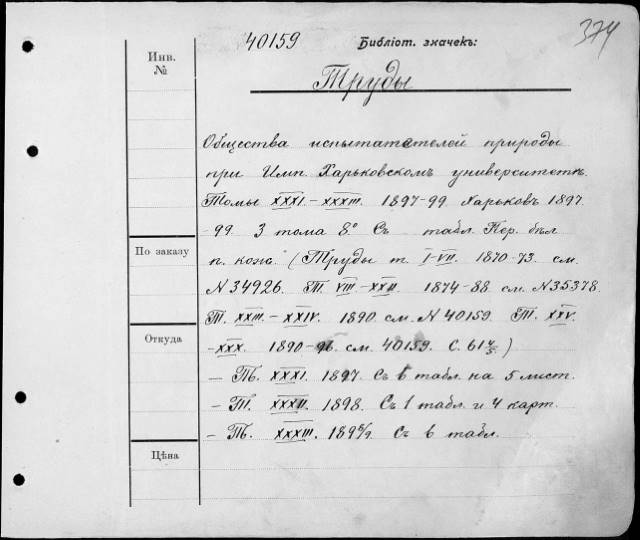 374
40159 Библіот. значекъ:
Инв. №
Труды
Общества испытателей природы
при Имп. Харьковскомъ университетѣ.
Томы XXXI.-XXXIII. 1897-99. Харьковъ 1897
-99. 3 тома 8° Съ табл. Пер. бѣл
По заказу
п. кож. (Труды т. I-VII. 1870-73. см.
N 34926. Т. VIII.-XXII. 1874-88 см. N 35378.
Т. XXIII.-XXIV. 1890. см. N 40159. Т. XXV.
Откуда
-XXX. 1890-96. см. 40159. С. 61 )
- Тъ. XXXI. 1897. Съ 6 табл. на 5 лист.
- Т. XXXII. 1898. Съ 1 табл. и 4 карт.
- Тъ. XXXIII. 1898/9. Съ 6 табл.
Цѣна